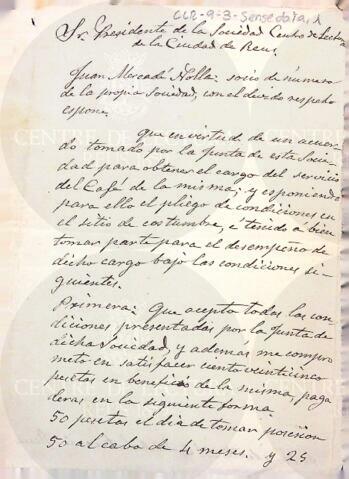 CLR-9-3-Sense data, 1
Sr. Presidente de la Sociedad Centro de Lectura
de la Ciudad de Reus
Juan Mercadé Nolla: socio de número
de la propia sociedad, con el devido respeto
espone.
que en virtud de un acuer-
do tomado por la Junta de esta Socie-
dad para obtener el cargo del servicio
del Café de la misma; y esponiendo
para ello el pliego de condiciones en
el sitio de costumbre, é tenido a bien
tomar parte para el desempeño de
dicho cargo bajo las condiciones si-
guientes.
Primera: Que acepto todas las con-
diciones presentadas por la Junta de
dicha Sociedad, y ademas me compro
meto en satisfacer ciento veinticinco
pesetas en beneficio de la misma, paga
deras en la siguiente forma.
50 pesetas el dia de tomar posesion
50 al cabo de 4 meses. y 25